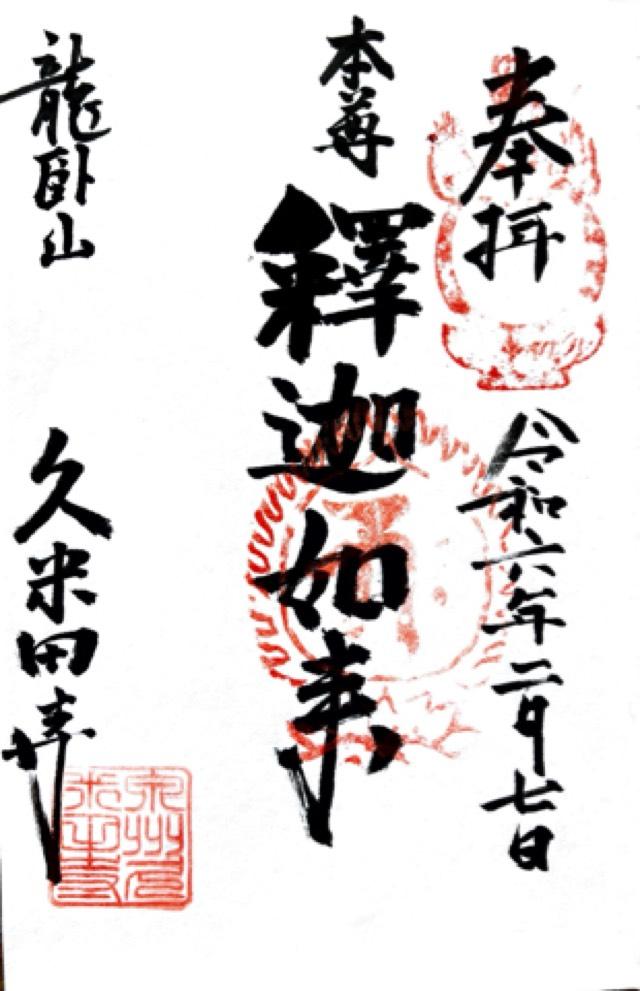 奉拝
令和六年二月七日
本尊
釋迦如来
龍臥山
久米田寺